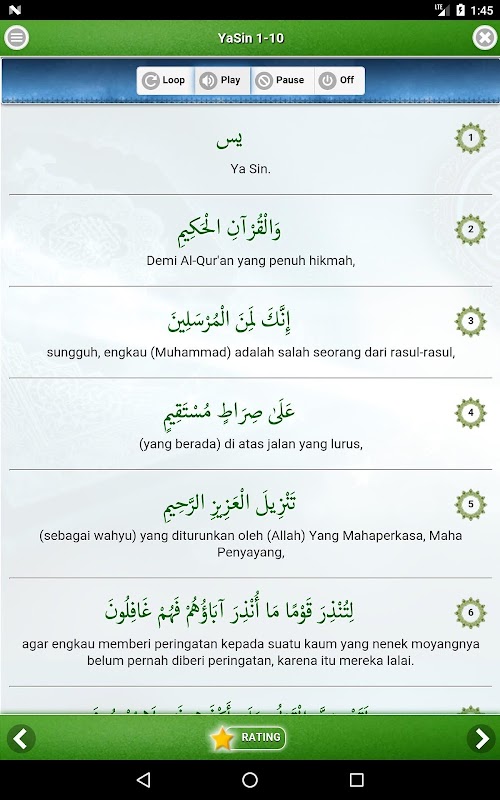 LTE 1:45
YaSin 1-10
Loop Play Pause Off
يس
1
Ya Sin.
وَالْقُرْآنِ الْحَكِيمِ
2
Demi Al-Qur'an yang penuh hikmah,
إِنَّكَ لَمِنَ الْمُرْسَلِينَ
3
sungguh, engkau (Muhammad) adalah salah seorang dari rasul-rasul,
عَلَىٰ صِرَاطٍ مُسْتَقِيمٍ
4
(yang berada) di atas jalan yang lurus,
تَنْزِيلَ الْعَزِيزِ الرَّحِيمِ
5
(sebagai wahyu) yang diturunkan oleh (Allah) Yang Mahaperkasa, Maha
Penyayang,
لِتُنْذِرَ قَوْمًا مَا أُنْذِرَ آبَاؤُهُمْ فَهُمْ غَافِلُونَ
6
agar engkau memberi peringatan kepada suatu kaum yang nenek moyangnya
belum pernah diberi peringatan, karena itu mereka lalai.
RATING